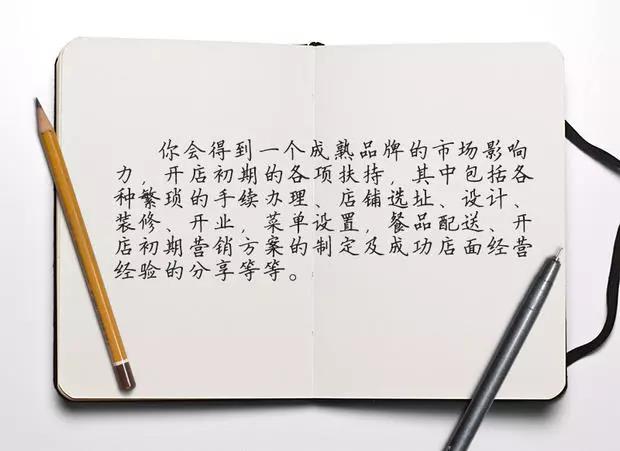 你会得到一个成熟品牌的市场影响
力，开店初期的各项扶持，其中包括各
种繁琐的手续办理、店铺选址、设计、
装修、开业，菜单设置，餐品配送、开
店初期营销方案的制定及成功店面经营
经验的分享等等。